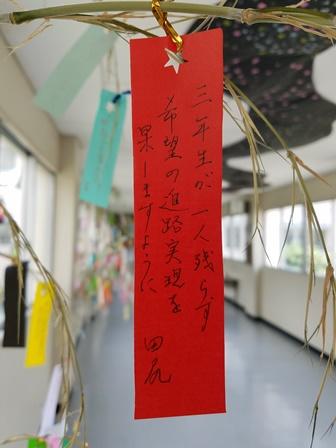 三年生が一人残らず
希望の進路実現を
果しますように
田尻